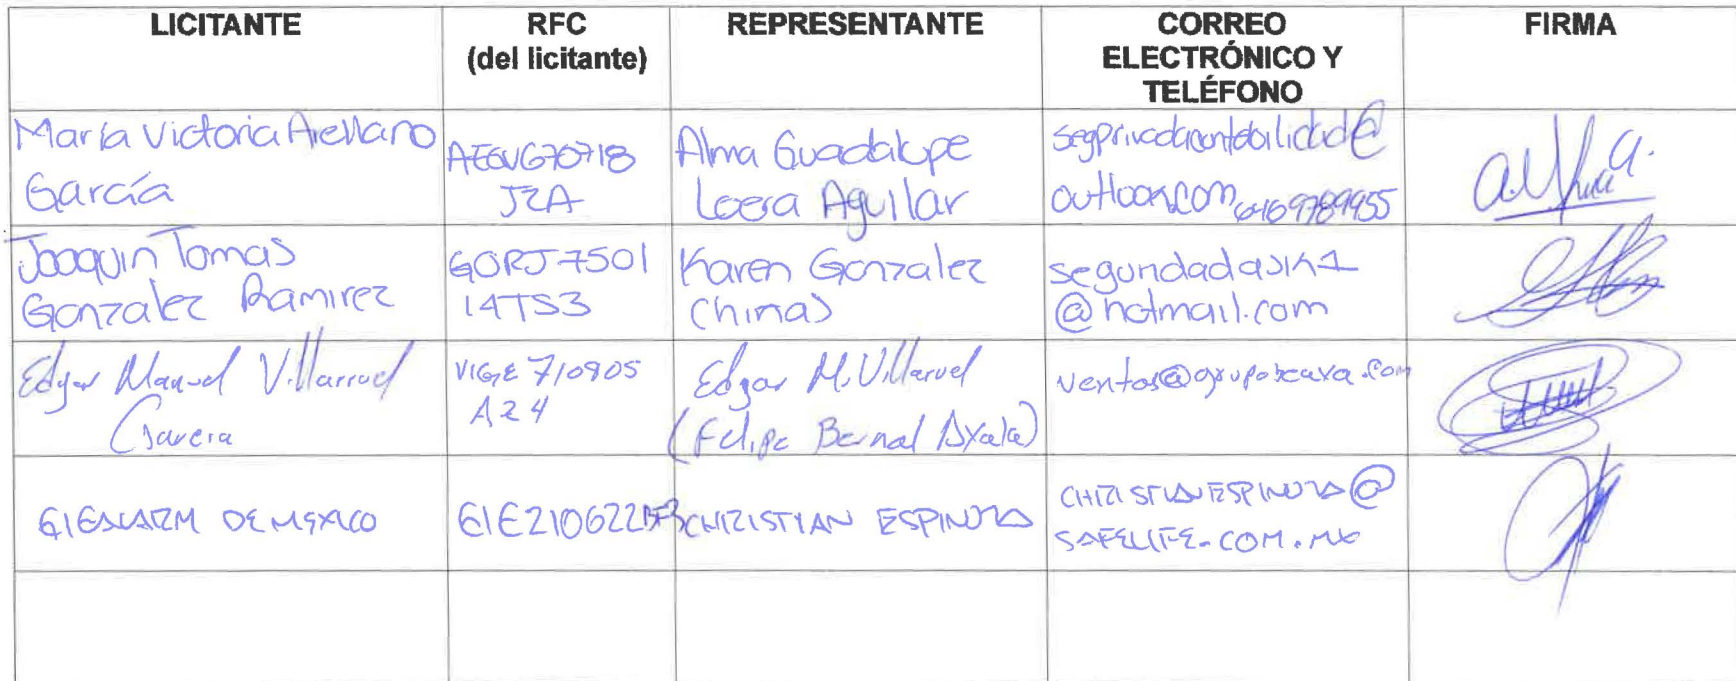 LICITANTE
RFC
(del licitante)
REPRESENTANTE
CORREO
ELECTRÓNICO Y
TELÉFONO
FIRMA
María Victoria Arellano
García
AEGV670718
JZA
Alma Guadalupe
Loera Aguilar
segprivadacontabilidad@
outlook.com
Joaquin Tomas
Gonzalez Ramirez
GORJ7501
14TS3
Karen Gonzalez
Chinas
@hotmail.com
Edgar Manuel Villarruel
Garcia
VIGE710905
A24
Edgar M. Villaruel
(Felipe Bernal Ayala)
DE MEXICO
CHRISTIAN ESPINOZA
CHRISTIANESPINOZA@
SAFELIFE.COM.MX